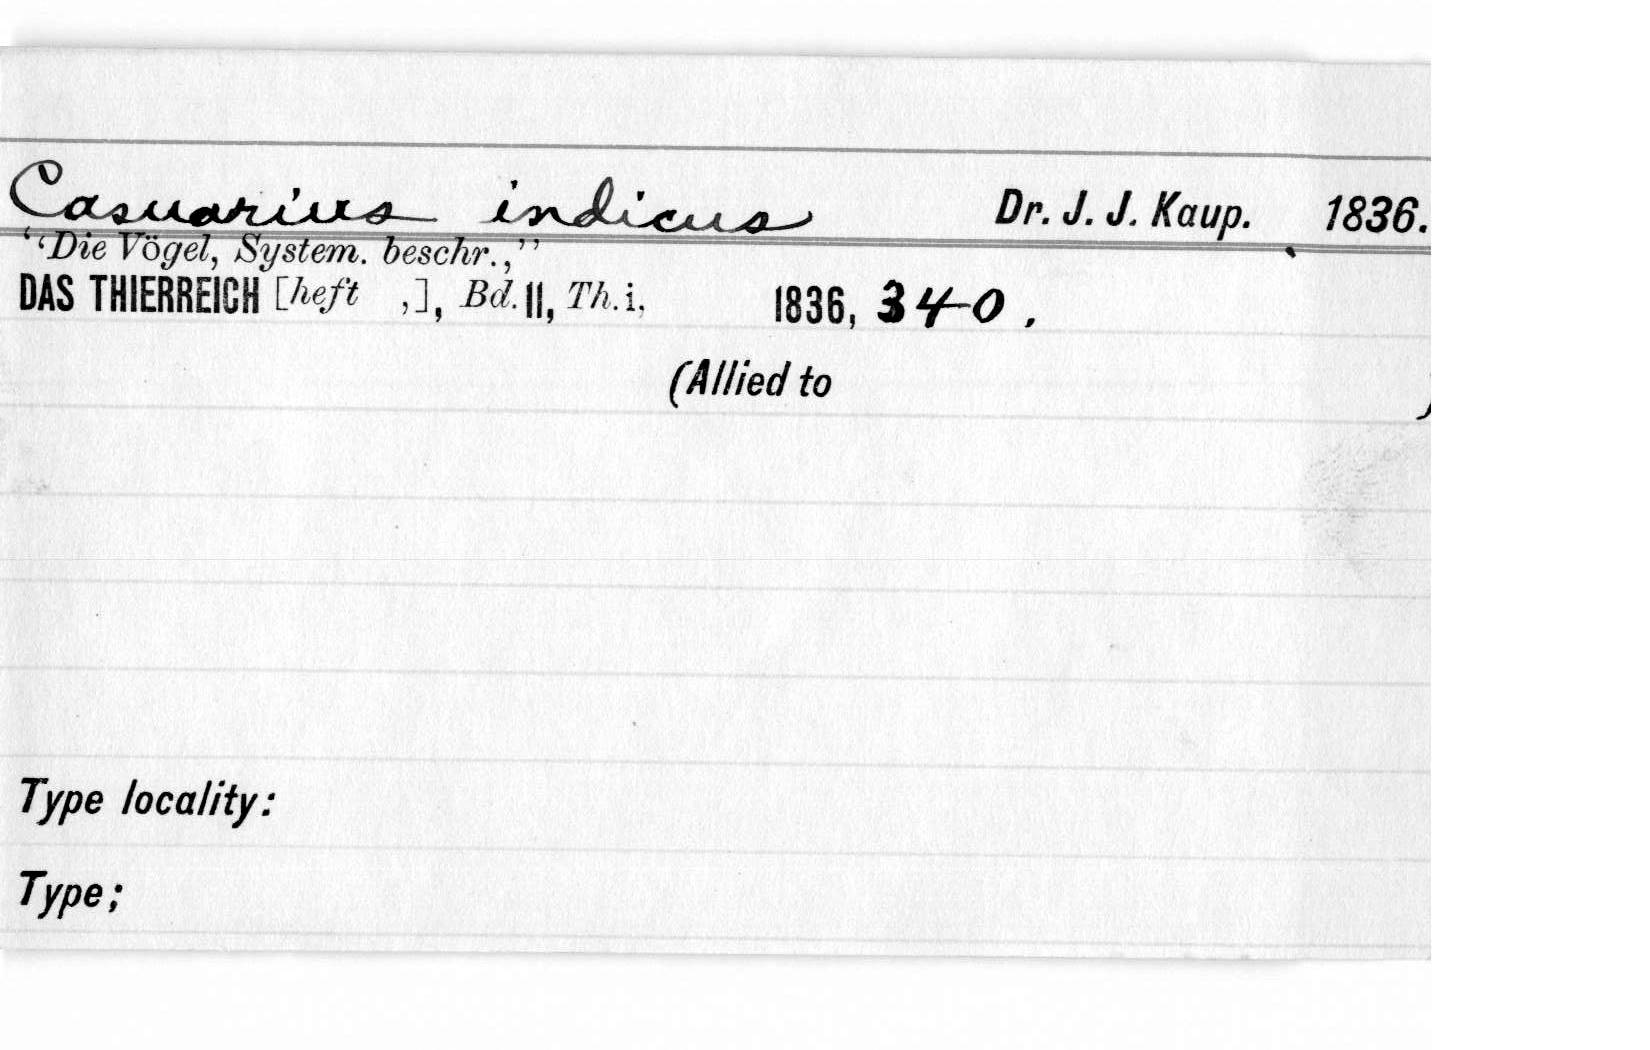 Casuarius indicus Dr. J. J. Kaup. 1836.
“Die Vögel, System. beschr.,”
DAS THIERREICH [heft ,], Bd. II, Th. i, 1836, 340.
(Allied to )
Type locality:
Type;